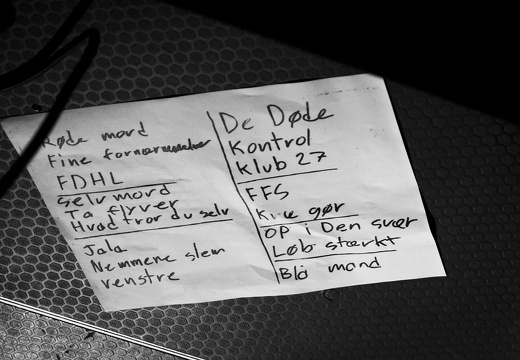 Røde mord
Fine fornærmelser
FDHL
Selv mord
Ta flyver
Hvad tror du selv
Jala
Nemmene slem
venstre
De Døde
Kontrol
klub 27
FFS
gør
OP i Den svær
Løb stærkt
Blå mand